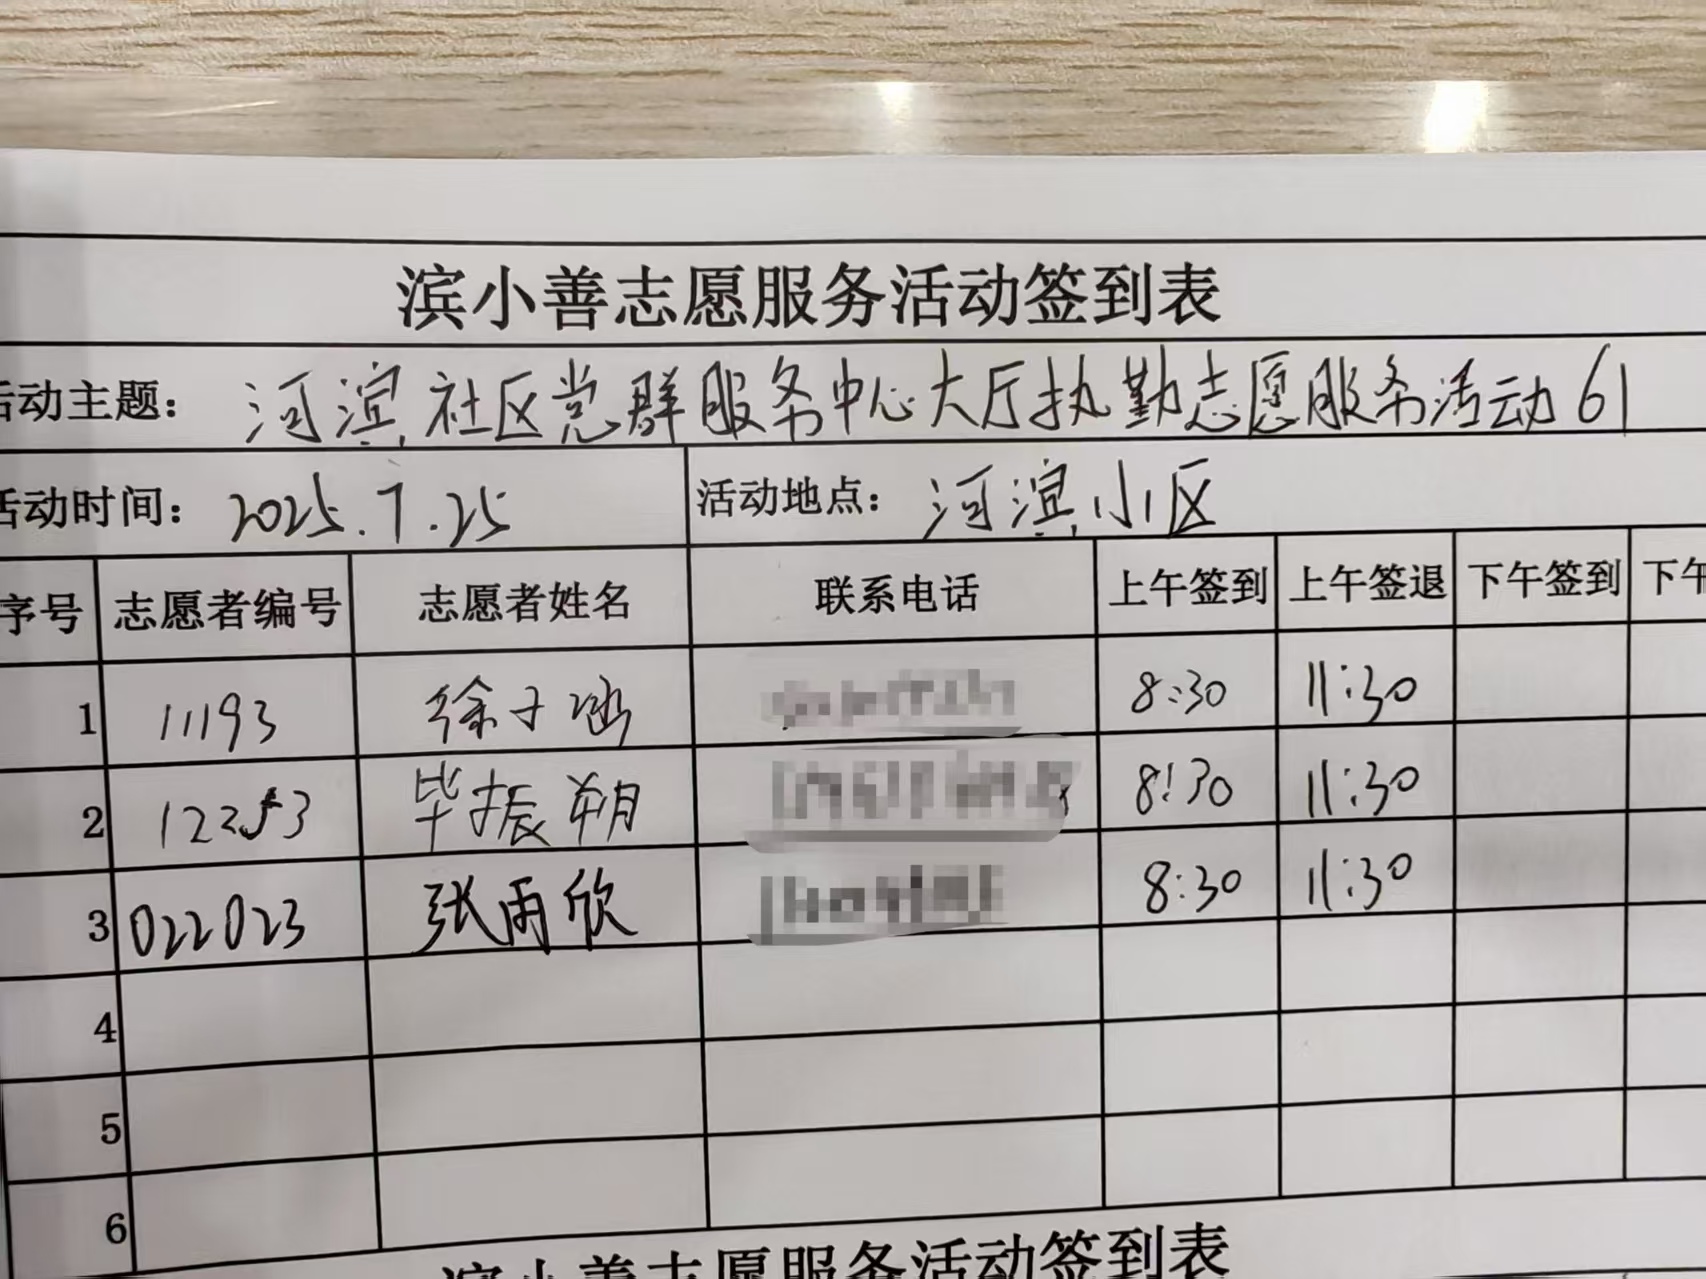 滨小善志愿服务活动签到表
活动主题: 河滨社区党群服务中心大厅执勤志愿服务活动61
活动时间: 2025.7.25 活动地点: 河滨小区
序号 志愿者编号 志愿者姓名 联系电话 上午签到 上午签退 下午签到 下午
1 11193 徐子涵 8:30 11:30
2 毕振朔 8:30 11:30
3 022023 张雨欣 8:30 11:30
4
5
6
滨小善志愿服务活动签到表